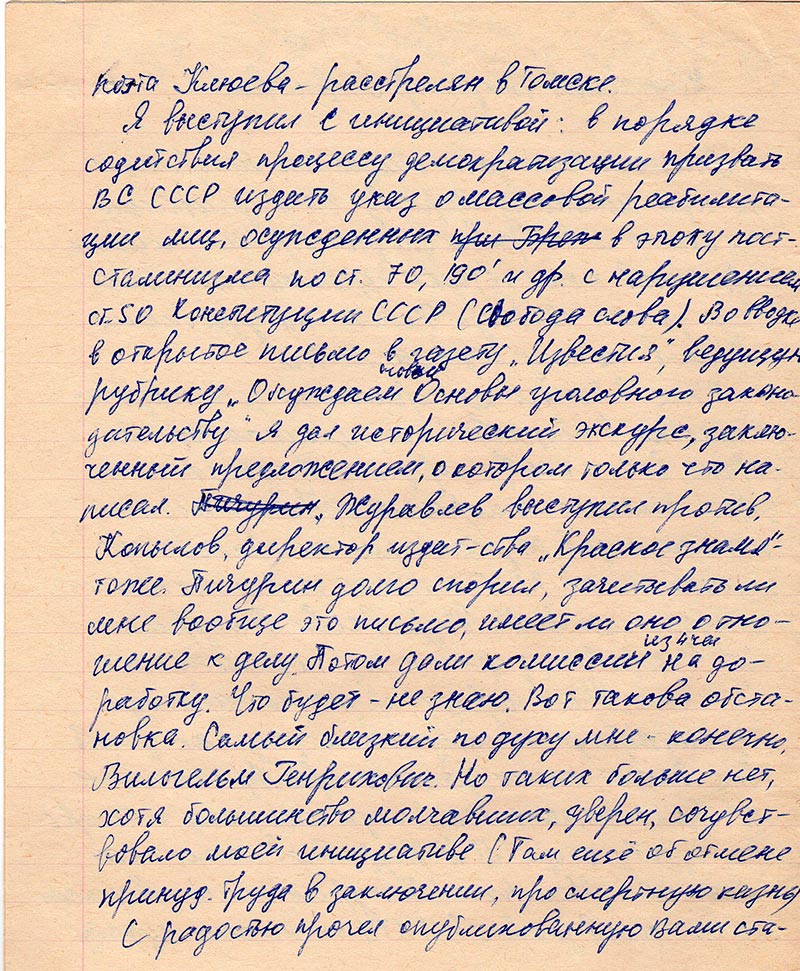 поэта Клюева – расстрелян в Томске.
Я выступил с инициативой: в порядке
содействия процессу демократизации призвать
ВС СССР издать указ о массовой реабилита-
ции лиц, осужденных при Бреж в эпоху пост-
сталинизма по ст. 70, 190' и др. с нарушением
ст. 50 Конституции СССР (свобода слова). Во вводке
в открытое письмо в газету „Известия", ведущую
рубрику „Обсуждаем Основы уголовного законо-
новый
дательству" я дал исторический экскурс, заклю-
ченный предложением, о котором только что на-
писал. Пичурин, Журавлев выступил против,
Копылов, директор издат-ства „Красное знамя"-
тоже. Пичурин долго спорил, зачитывать ли
мне вообще это письмо, имеет ли оно отно-
шение к делу. Потом дали комиссии из 4 чел на до-
работку. Что будет – не знаю. Вот такова обста-
новка. Самый близкий по духу мне – конечно,
Вильгельм Генрихович. Но таких больше нет,
хотя большинство молчавших, уверен, сочувст-
вовало моей инициативе. (Там ещё об отмене
принуд. труда в заключении, про смертную казнь)
С радостью прочел опубликованную Вами ста-